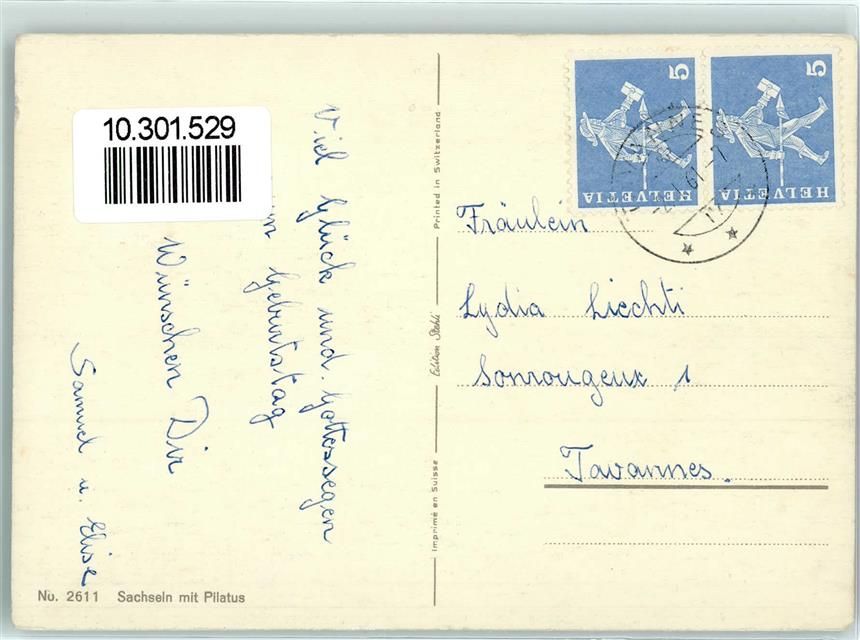 10.301.529
Viel Glück und Gottessegen
Geburtstag
Wünschen Dir
Samuel u. Elise
No. 2611 Sachseln mit Pilatus
Printed in Switzerland
Edition Stehli
Imprimé en Suisse
5
HELVETIA
5
HELVETIA
61-7
17
Fräulein
Lydia Liechti
Sonrougeux 1
Tavannes.